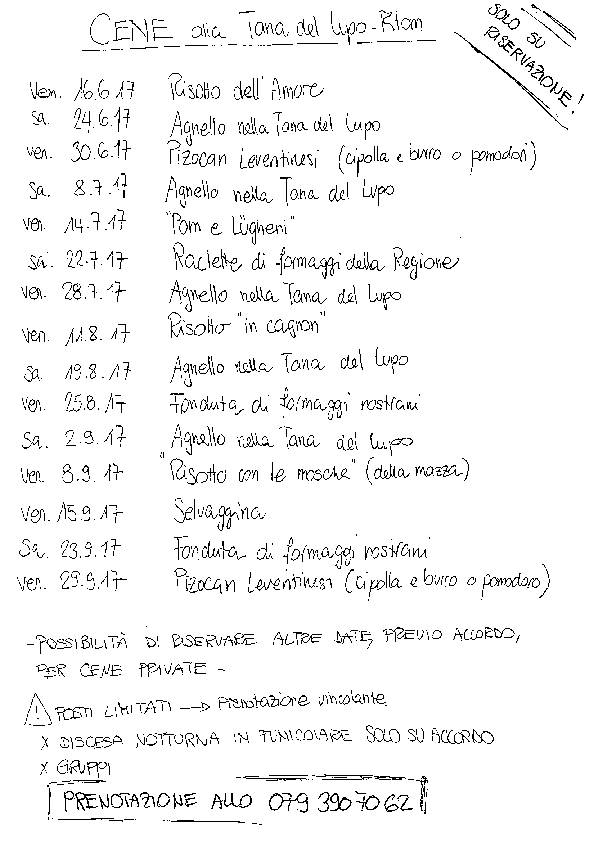 CENE alla Tana del Lupo-Ritom
SOLO SU
RISERVAZIONE!
Ven. 16.6.17 Risotto dell'Amore
Sa. 24.6.17 Agnello nella Tana del Lupo
ven. 30.6.17 Pizocan Leventinesi (cipolla e burro o pomodori)
Sa. 8.7.17 Agnello nella Tana del Lupo
ven. 14.7.17 "Pom e Lügheni"
Sa. 22.7.17 Raclette di formaggi della Regione
ven. 28.7.17 Agnello nella Tana del Lupo
ven. 11.8.17 Risotto "in cagnon"
Sa. 19.8.17 Agnello nella Tana del Lupo
Ven. 25.8.17 Fonduta di formaggi nostrani
Sa. 2.9.17 Agnello nella Tana del Lupo
Ven. 8.9.17 "Risotto con le mosche" (della mazza)
Ven. 15.9.17 Selvaggina
Sa. 23.9.17 Fonduta di formaggi nostrani
Ven. 29.9.17 Pizocan Leventinesi (cipolla e burro o pomodoro)
- POSSIBILITÀ DI RISERVARE ALTRE DATE, PREVIO ACCORDO,
PER CENE PRIVATE -
! POSTI LIMITATI → Prenotazione vincolante
X DISCESA NOTTURNA IN FUNICOLARE SOLO SU ACCORDO
X GRUPPI
PRENOTAZIONE ALLO 079 390 70 62